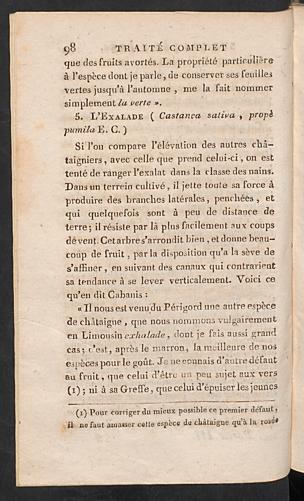 98 TRAITÉ COMPLET
que des fruits avortés. La propriété particulière
à l'espèce dont je parle, de conserver ses feuilles
vertes jusqu'à l'automne, me la fait nommer
simplement la verte ».
5. L'EXALADE ( Castanea sativa, propè
pumila E. C. )
Si l'on compare l'élévation des autres châ-
taigniers, avec celle que prend celui-ci, on est
tenté de ranger l'exalat dans la classe des nains.
Dans un terrein cultivé, il jette toute sa force à
produire des branches latérales, penchées, et
qui quelquefois sont à peu de distance de
terre; il résiste par là plus facilement aux coups
de vent. Cet arbre s'arrondit bien, et donne beau-
coup de fruit, par la disposition qu'a la sève de
s'affiner, en suivant des canaux qui contrarient
sa tendance à se lever verticalement. Voici ce
qu'en dit Cabanis :
« Il nous est venu du Périgord une autre espèce
de châtaigne, que nous nommons vulgairement
en Limousin exhalade, dont je fais aussi grand
cas; c'est, après le marron, la meilleure de nos
espèces pour le goût. Je ne connais d'autre défaut
au fruit, que celui d'être un peu sujet aux vers
(1); ni à sa Greffe, que celui d'épuiser les jeunes
(1) Pour corriger du mieux possible ce premier défaut,
il ne faut amasser cette espèce de châtaigne qu'à la rosée